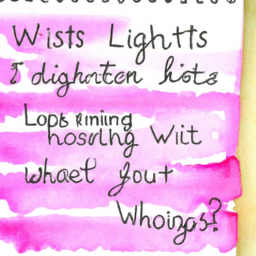 Wists Lightts
I dighonten hists
Lops rining
hosrlng Wit
whaet yout
Whoings?